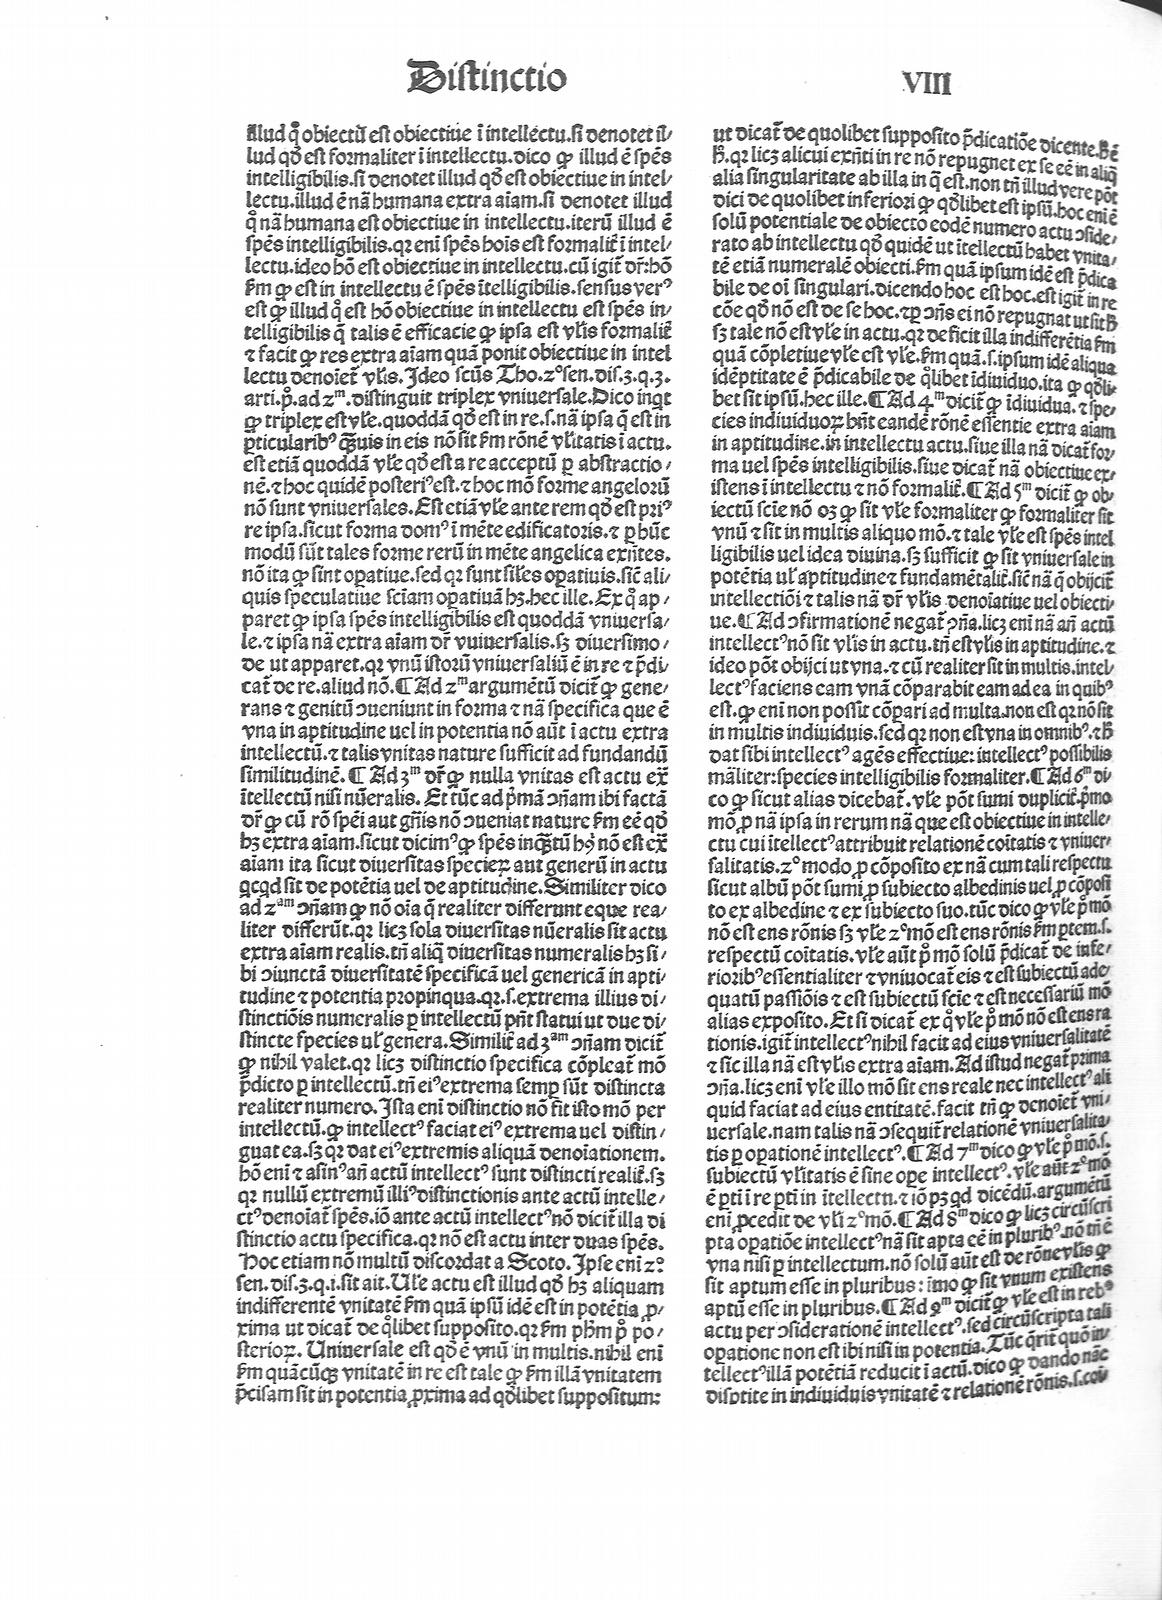 Distinctio
VIII
illud q̄ obiectū est obiectiue ī intellectu. si denotet il/
lud qđ est formaliter ī intellectu. dico ꝙ illud ē spēs
intelligibilis. si denotet illud qđ est obiectiue in intel/
lectu. illud ē nā humana extra aīam. si denotet illud
q̄ nā humana est obiectiue in intellectu. iterū illud ē
spēs intelligibilis. qꝛ eni spēs hois est formalit̄ ī intel/
lectu. ideo hō est obiectiue in intellectu. cū igit̄ dr̄: hō
ẜm ꝙ est in intellectu ē spēs ītelligibilis. sensus verꝰ
est ꝙ illud q̊ est hō obiectiue in intellectu est spēs in/
telligibilis q̄ talis ē efficacie ꝙ ipsa est vl̄is formalit̄
⁊ facit ꝙ res extra aīam quā ponit obiectiue in intel
lectu denoiet̄ vl̄is. Ideo scūs Tho. 2º sen. dis. 3. q. 3.
arti. p̊. ad 2ᵐ. distinguit triplex vniuersale. Dico inqt
ꝙ triplex est vl̄e. quoddā qđ est in re. s. nā ipsa q̄ est in
ꝑticularibꝰ q̄uis in eis nō sit ẜm rōnē vl̄itatis ī actu.
est etiā quoddā vl̄e qđ est a re acceptū ꝑ abstractio/
nē. ⁊ hoc quidē posteriꝰ est. ⁊ hoc mō forme angelorū
nō sunt vniuersales. Est etiā vl̄e ante rem qđ est priꝰ
re ipsa. sicut forma domꝰ ī mēte edificatoris. ⁊ ꝑ hūc
modū sūt tales forme rerū in mēte angelica exn̄tes.
nō ita ꝙ sint oꝑatiue. sed qꝛ sunt siles oꝑatiuis. sic̄ ali/
quis speculatiue sciam oꝑatiuā hꝫ. hec ille. Ex q̊ ap/
paret ꝙ ipsa spēs intelligibilis est quoddā vniuersa/
le. ⁊ ipsa nā extra aīam dr̄ vniuersalis. sꝫ diuersimo/
de ut apparet. qꝛ vnū istorū vniuersaliū ē in re ⁊ p̄di/
cat̄ de re. aliud nō. ¶ Ad 2ᵐ argumētū dicit̄ ꝙ gene/
rans ⁊ genitū ↄueniunt in forma ⁊ nā specifica que ē
vna in aptitudine uel in potentia nō aūt ī actu extra
intellectū. ⁊ talis vnitas nature sufficit ad fundandū
similitudinē. ¶ Ad 3ᵐ dr̄ ꝙ nulla vnitas est actu ex̄
ītellectū nisi nūeralis. Et tūc ad p̄mā ↄn̄am ibi factā
dr̄ ꝙ cū rō spēi aut gn̄is nō ↄueniat nature ẜm eē qđ
hꝫ extra aīam. sicut dicimꝰ ꝙ spēs inq̄tū hꝰ nō est ex̄
aīam ita sicut diuersitas specieꝝ aut generū in actu
qcqd sit de potētia uel de aptitudine. Similiter dico
ad 2ᵃᵐ ↄn̄am ꝙ nō oīa q̄ realiter differunt eque rea/
liter differūt. qꝛ licꝫ sola diuersitas nūeralis sit actu
extra aīam realis. tn̄ aliq̄ diuersitas numeralis hꝫ si/
bi ↄiunctā diuersitatē specificā uel genericā in apti/
tudine ⁊ potentia propinqua. qꝛ. s. extrema illius di/
stinctiōis numeralis ꝑ intellectū pn̄t statui ut due di/
stincte species ul̄ genera. Similit̄ ad 3ᵃᵐ ↄn̄am dicit̄
ꝙ nihil valet. qꝛ licꝫ distinctio specifica cōpleat̄ mō
p̄dicto ꝑ intellectū. tn̄ eiꝰ extrema semꝑ sūt distincta
realiter numero. Ista eni distinctio nō fit isto mō per
intellectū. ꝙ intellectꝰ faciat eiꝰ extrema uel distin/
guat ea. sꝫ qꝛ dat eiꝰ extremis aliquā denoiationem.
hō eni ⁊ asinꝰ an̄ actū intellectꝰ sunt distincti realit̄. sꝫ
qꝛ nullū extremū illiꝰ distinctionis ante actū intelle/
ctꝰ denoiat̄ spēs. iō ante actū intellectꝰ nō dicit̄ illa di
stinctio actu specifica. qꝛ nō est actu inter duas spēs.
Hoc etiam nō multū discordat a Scoto. Ipse eni 2º
sen. dis. 3. q. 1. sit ait. Ul̄e actu est illud qđ hꝫ aliquam
indifferentē vnitatē ẜm quā ipsū idē est in potētia ꝓ/
xima ut dicat̄ de q̊libet supposito. qꝛ ẜm ph̄m p̊ po/
sterioꝝ. Uniuersale est qđ ē vnū in multis. nihil eni
ẜm quācūqꝫ vnitatē in re est tale ꝙ ẜm illā vnitatem
p̄cisam sit in potentia ꝓxima ad qđlibet suppositum:
ut dicat̄ de quolibet supposito p̄dicatiōe dicente. hē
h̄. qꝛ licꝫ alicui exn̄ti in re nō repugnet ex se eē in aliq̄
alia singularitate ab illa in q̄ est. non tn̄ illud vere pōt
dici de quolibet inferiori ꝙ qđlibet est ipsū. hoc eni ē
solū potentiale de obiecto eodē numero actu ↄside/
rato ab intellectu qđ quidē ut ītellectū habet vnita/
tē etiā numeralē obiecti. ẜm quā ipsum idē est p̄dica
bile de oī singulari. dicendo hoc est hoc. est igit̄ in re
cōe qđ nō est de se hoc. ⁊ ꝑ ↄn̄s ei nō repugnat ut sit h̄
sꝫ tale nō est vl̄e in actu. qꝛ deficit illa indifferētia ẜm
quā cōpletiue vl̄e est vl̄e. ẜm quā. s. ipsum idē aliqua
idēptitate ē p̄dicabile de q̊libet īdiuiduo. ita ꝙ qđli/
bet sit ipsū. hec ille. ¶ Ad 4ᵐ dicit̄ ꝙ īdiuidua. ⁊ spe/
cies indiuiduoꝝ hn̄t eandē rōnē essentie extra aiam
in aptitudine. in intellectu actu. siue illa nā dicat̄ for/
ma uel spēs intelligibilis. siue dicat̄ nā obiectiue ex/
istens ī intellectu ⁊ nō formalit̄. ¶ Ad 5ᵐ dicit̄ ꝙ ob/
iectū scie nō oꝫ ꝙ sit vl̄e formaliter ꝙ formaliter sit
vnū ⁊ sit in multis aliquo mō. ⁊ tale vl̄e est spēs intel
ligibilis uel idea diuina. sꝫ sufficit ꝙ sit vniuersale in
potētia ul̄ aptitudine ⁊ fundamētalit̄. sic̄ nā q̄ obijcit̄
intellectiōi ⁊ talis nā dr̄ vl̄is denoiatiue uel obiecti/
ue. ¶ Ad ↄfirmationē negat̄ ↄn̄a. licꝫ eni nā an̄ actū
intellectꝰ nō sit vl̄is in actu. tn̄ est vl̄is in aptitudine. ⁊
ideo pōt obijci ut vna. ⁊ cū realiter sit in multis. intel/
lectꝰ faciens eam vnā cōparabit eam ad ea in quibꝰ
est. ꝙ eni non possit cōpari ad multa. non est qꝛ nō sit
in multis indiuiduis. sed qꝛ non est vna in omnibꝰ. ⁊ h̄
dat sibi intellectꝰ agēs effectiue: intellectꝰ possibilis
māliter: species intelligibilis formaliter. ¶ Ad 6ᵐ di
co ꝙ sicut alias dicebat̄. vl̄e pōt sumi duplicit̄. p̄mo
mō. ꝓ nā ipsa in rerum nā que est obiectiue in intelle/
ctu cui ītellectꝰ attribuit relationē coitatis ⁊ vniuer/
salitatis. 2º modo ꝓ cōposito ex nā cum tali respectu
sicut albū pōt sumi ꝓ subiecto albedinis uel ꝓ cōposi
to ex albedine ⁊ ex subiecto suo. tūc dico ꝙ vl̄e p̄mō
nō est ens rōnis sꝫ vl̄e 2º mō est ens rōnis ẜm ptem. s.
respectū coitatis. vl̄e aūt p̊ mō solū p̄dicat̄ de infe/
rioribꝰ essentialiter ⁊ vniuocat̄ eis ⁊ est subiectū ade/
quatū passiōis ⁊ est subiectū scie ⁊ est necessariū mō
alias exposito. Et si dicat̄ ex q̊ vl̄e p̊ mō nō est ens ra
tionis. igit̄ intellectꝰ nihil facit ad eius vniuersalitatē
⁊ sic illa nā est vl̄is extra aīam. Ad istud negat̄ prima
ↄn̄a. licꝫ eni vl̄e illo mō sit ens reale nec intellectꝰ ali
quid faciat ad eius entitatē. facit tn̄ ꝙ denoiet̄ vni/
uersale. nam talis nā ↄsequit̄ relationē vniuersalita/
tis ꝑ oꝑationē intellectꝰ. ¶ Ad 7ᵐ dico ꝙ vl̄e p̊ mō. s.
subiectū vl̄itatis ē sine ope intellectꝰ. vl̄e aūt 2º mō
ē ptī ī re ptī in ītellectu. ⁊ iō pꝫ qd dicēdū. argumētū
eni ꝓcedit de vl̄i 2º mō. ¶ Ad 8ᵐ dico ꝙ licꝫ circūscri
pta oꝑatiōe intellectꝰ nā sit apta eē in pluribꝰ. nō tn̄ ē
vna nisi ꝑ intellectum. nō solū aūt est de rōne vl̄is ꝙ
sit aptum esse in pluribus: imo ꝙ sit vnum existens
aptū esse in pluribus. ¶ Ad 9ᵐ dicit̄ ꝙ vl̄e est in rebꝰ
actu per ↄsiderationē intellectꝰ. sed circūscripta tali
oꝑatione non est ibi nisi in potentia. Tūc q̄rit̄ quō in/
tellectꝰ illā potētiā reducit ī actū. dico ꝙ dando nāe
disꝑtite in indiuiduis vnitatē ⁊ relationē rōnis. s. coi/